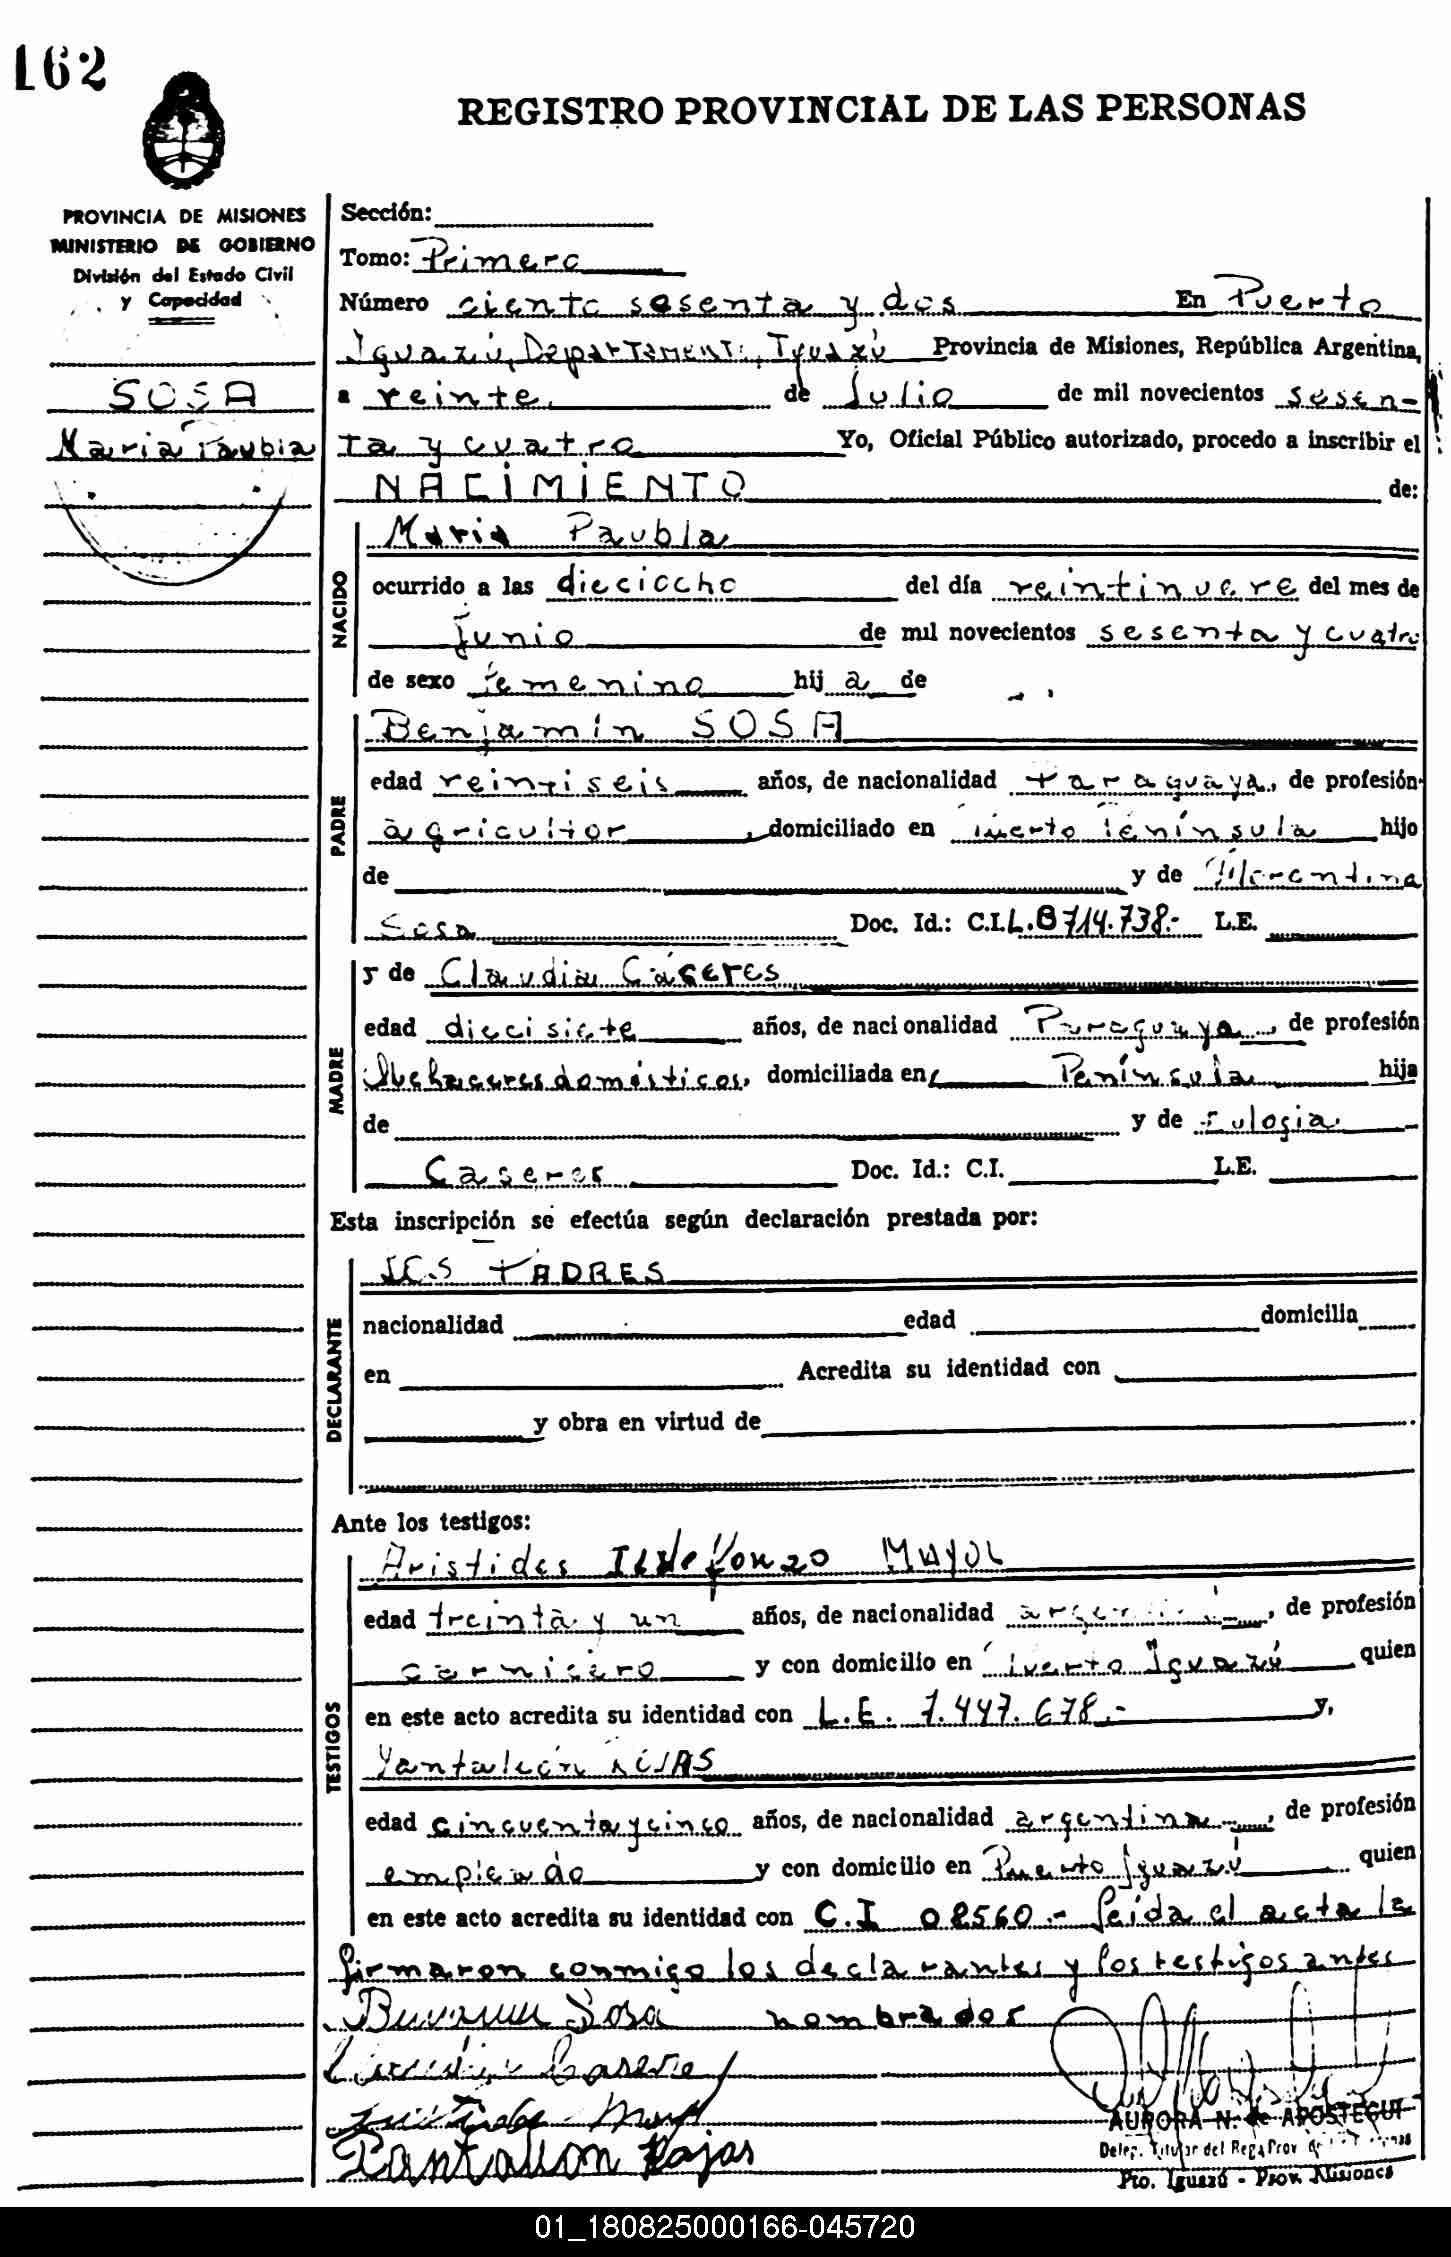 162
REGISTRO PROVINCIAL DE LAS PERSONAS
PROVINCIA DE MISIONES
MINISTERIO DE GOBIERNO
División del Estado Civil
y Capacidad
SOSA
Maria Paubla
Sección:
Tomo: Primero
Número ciento sesenta y dos En Puerto
Iguazú, Departamento, Iguazú Provincia de Misiones, República Argentina,
a veinte de Julio de mil novecientos sesen-
ta y cuatro Yo, Oficial Público autorizado, procedo a inscribir el
NACIMIENTO de:
NACIDO
Maria Paubla
ocurrido a las dieciocho del día veintinueve del mes de
Junio de mil novecientos sesenta y cuatro
de sexo femenino hij a de
PADRE
Benjamín SOSA
edad veintiseis años, de nacionalidad Paraguaya, de profesión
agricultor, domiciliado en Puerto Península hijo
de y de Florentina
Sosa Doc. Id.: C.I. L.B 714.738.- L.E.
MADRE
y de Claudia Cáseres
edad diecisiete años, de nacionalidad Paraguaya, de profesión
Quehaceres domésticos, domiciliada en Península hija
de y de Eulogia
Caseres Doc. Id.: C.I. L.E.
Esta inscripción se efectúa según declaración prestada por:
DECLARANTE
LOS PADRES
nacionalidad edad domicilia
en Acredita su identidad con
y obra en virtud de
Ante los testigos:
TESTIGOS
Aristides Ildefonzo MAYOL
edad treinta y un años, de nacionalidad argentina, de profesión
carnicero y con domicilio en Puerto Iguazú quien
en este acto acredita su identidad con L.E. 7.447.678.- y,
Pantaleón ROJAS
edad cincuenta y cinco años, de nacionalidad argentina, de profesión
empleado y con domicilio en Puerto Iguazú quien
en este acto acredita su identidad con C.I 08560.- Leída el acta la
firmaron conmigo los declarantes y los testigos antes
nombrados
Sosa
Casere
Pantalion Rojas
AURORA N. de APOSTEGUI
Deleg. Titular del Reg. Prov. de
Pto. Iguazú - Prov. Misiones
01_180825000166-045720